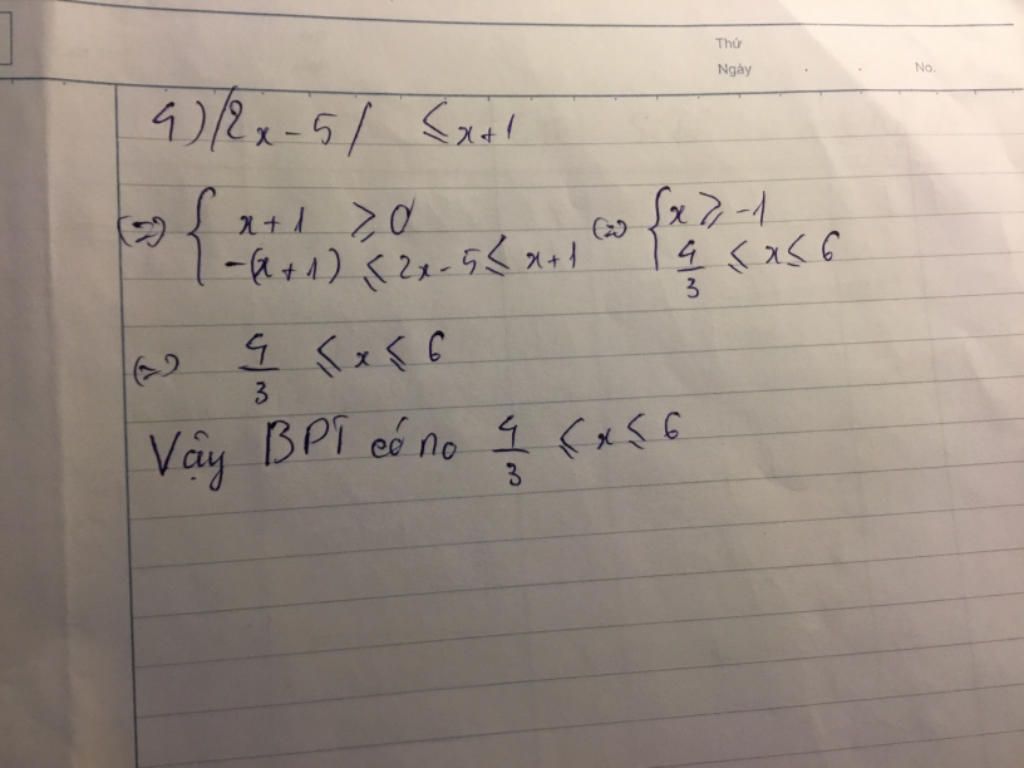 Thứ
Ngày . . No.
4) |2x-5| ≤ x+1
(=) { x+1 ≥ 0 (=) { x ≥ -1
-(x+1) ≤ 2x-5 ≤ x+1 4/3 ≤ x ≤ 6
(=) 4/3 ≤ x ≤ 6
Vậy BPT có no 4/3 ≤ x ≤ 6